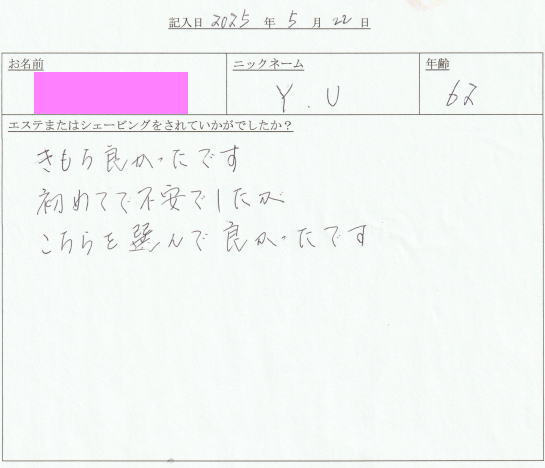 記入日 2025 年 5 月 22 日
お名前 ニックネーム 年齢
Y.U 62
エステまたはシェービングをされていかがでしたか？
きもち良かったです
初めてで不安でしたが
こちらを選んで良かったです